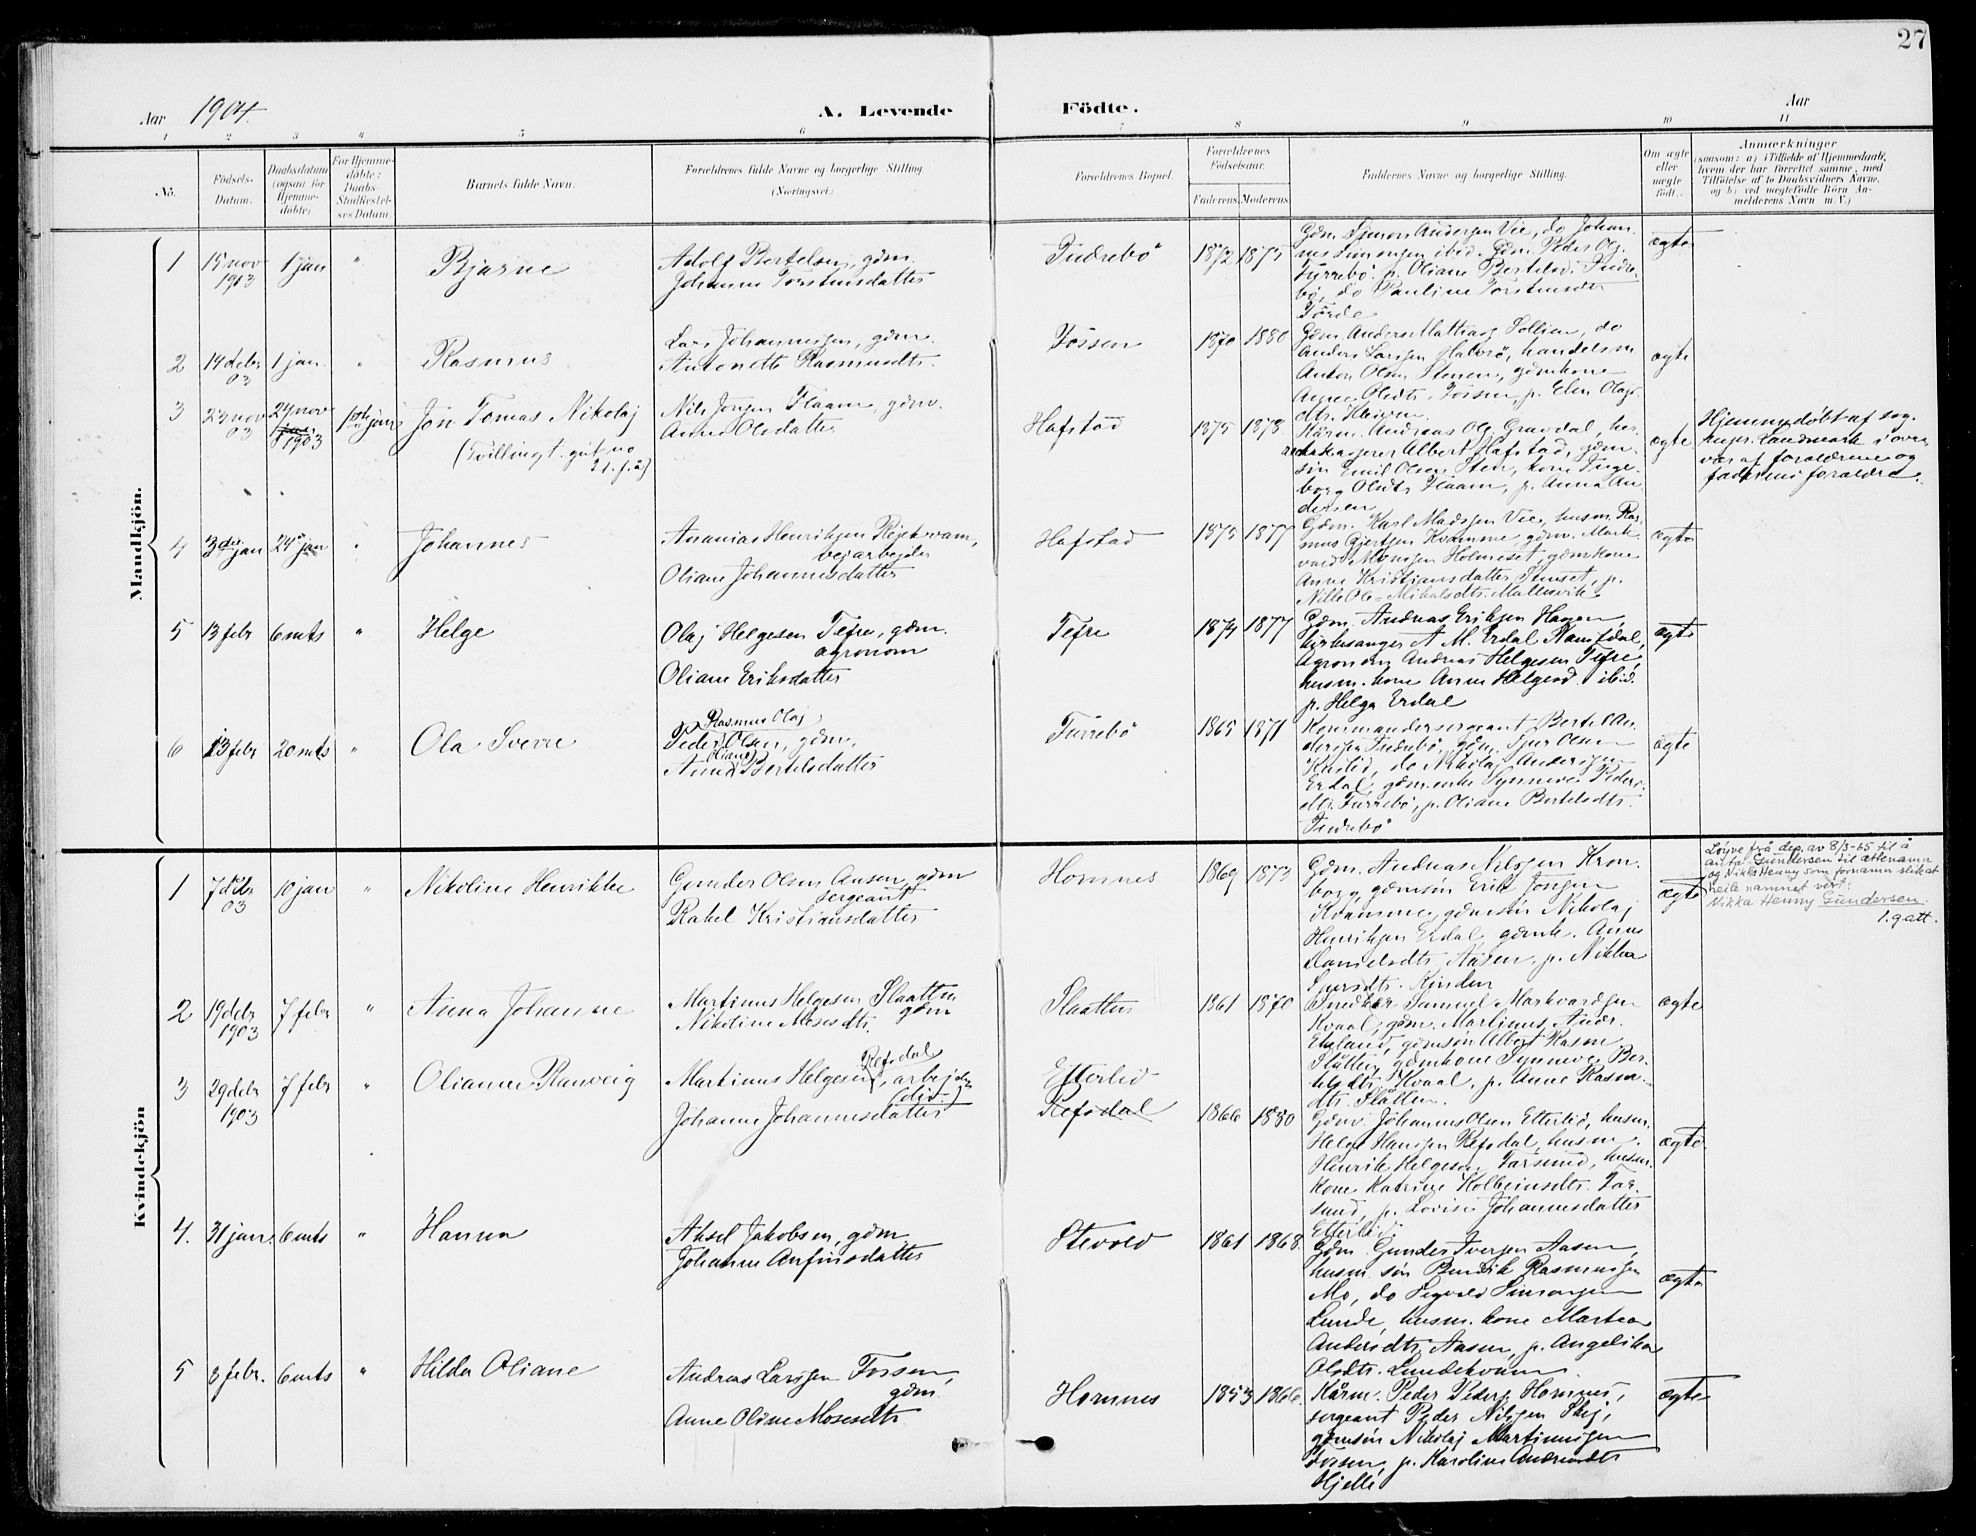 27
Aar 1904. A. Levende Födte. Aar
1 2 3 4 5 6 7 8 9 10 11
No.
Födsels-
Datum.
Daabsdatum
(ogsaa for
Hjemme-
döbte).
For Hjemme-
döbte:
Daabs-
Stadfæstel-
ses Datum.
Barnets fulde Navn.
Forældrenes fulde Navne og borgerlige Stilling.
(Næringsvei.)
Forældrenes Bopæl.
Forældrenes
Födselsaar.
Faderens. Moderens.
Faddernes Navne og borgerlige Stilling.
Om ægte
eller
uægte
födt.
Anmærkninger
(saasom: a) i Tilfælde af Hjemmedaab,
hvem der har forrettet samme, med
Tilföielse af to Daabsvidners Navne,
og b) ved uegtefödte Börn An-
melderens Navn m. V.)
Mandkjön.
1 15 nov 1903 1 jan " Bjarne
Adolf Bertelsen, gdm.
Johanne Torstensdatter
Indrebö 1872 1875
Gdm. Simon Andersen Vie, do Johan-
nes Simonsen ibid. Gdm. Peder Ols.
Furrebö. p. Oliane Bertelsd. Indre-
bö, do Pauline Torstensdtr
Förde
ægte
2 14 debr 03 1 jan. " Rasmus
Lars Johannessen, gdm.
Antonette Rasmusdtr.
Fossen 1870 1880
Gdm. Anders Mattiass. Sollien, do
Anders Larssen Halbrö, handelsm
Anton Olsen Stenen, gdmkone
Anne Olsdtr. Fossen, p. Elen Olags
dtr. Haugen
ægte
3 23 nov 03 24 nov 1903 jan Jon Tomas Nikolaj
(Tvilling t. gut no
21. f. å)
Nils Jonsen Flaam, gdm.
Anna Olsdatter
Hafstad 1875 1878
Kårm. Andreas Ols. Gravdal,
Albert Hafstad, gdm.
sön Emil Olsen Sten, kone Inge-
borg Olsdtr Flaam, p. Anna An-
dersen
ægte
Hjemmedøbt af sog-
nepr. Landmark i over-
vær af forældrene og
faderens forældre.
4 3die jan 24de jan " Johannes
Ananias Henriksen Rejekvam,
vejarbejder
Oliane Johannesdatter
Hafstad 1875 1877
Gdm. Karl Madssen Vie, husm. Ras-
mus Gjertsen Kvamme, gdm. Mark-
vard Monssen Holmeset, gdmkone
Anne Kristiansdatter Stenset, p.
Nille Ole-Mikalsdtr. Mallasvik
ægte
5 13 febr 6 mts " Helge
Olaj Helgesen Tefre, gdm.
agronom
Oliane Eriksdatter
Tefre 1874 1877
Gdm. Andreas Eriksen Hagen,
kirkesanger A. M. Erdal Ramsdal,
Agronom Andreas Helgesen Tefre,
husm. kone Anne Helgesd. ibid.
p. Helga Erdal
ægte
6 13 febr 20 mts " Ola Sverre
Rasmus Olaj
Peder Olsen, gdm.
Oliane
Anna Bertelsdatter
Furrebö 1865 1871
Kommandersergeant Bertel An-
derssen Indrebö, gdm. Sjur Olsen
Kuslid, do Nikolaj Andersen
Erdal, gdm.enke Synneve Peders-
dtr. Furrebö, p. Oliane Bertelsdtr.
Indrebö
ægte
Kvindekjön
1 7 debr 03 10 jan " Nikoline Henrikke
Gunder Olsen Aasen, gdm
sergeant
Rakel Kristiansdatter
Hornnes 1869 1873
Gdm. Andreas Nilssen Kron-
borg, gdmsön Erik Jonsen
Kvamme, gdmsön Nikolaj
Henriksen Erdal, gdmk. Anne
Danielsdtr. Aasen, p. Nikka
Sjursdtr. Rinden
ægte
Løyve frå dep. av 8/3-65 til å
anta Gundersen til ættenamn
og Nikka Henny som fornamn slik at
heile namnet vert:
Nikka Henny Gundersen.
1. g att.
2 19 debr 1903 7 febr " Anna Johanne
Martinus Helgesen Slaatten
gdm
Nikoline Mosesdtr.
Slaatten 1861 1870
Snedker Samuel Markvardsen
Kvaal, gdm. Martinus Andr.
Ekeland, gdmsön Albert Rasm
Slåtten, gdmkone Synneve Ber-
telsdtr. Kvaal, p. Anne Rasm.
dtr. Slåtten.
ægte
3 29 debr 1903 7 febr " Olianne Ranveig
Refsdal
Martinus Helgesen, arbejder
(div.)
Johanne Johannesdatter
Etterlid
Refsdal 1866 1880
Gdm. Johannes Olsen Etterlid, husm.
Helge Hanssen Refsdal, husm.
Henrik Helgesen Farsund, husm.
kone Katrine Kolbeinsdtr. Far-
sund, p. Lovise Johannesdatter
Etterlid
ægte
4. 31 jan. 6 mts " Hanna
Aksel Jakobsen, gdm
Johanne Anfinsdatter
Stevold 1861 1868.
Gdm. Gunder Iversen Aasen,
husm. sön Bendik Rasmussen
Mo, do Sigvald Simonsen
Lunde, husm. kone Martea
Andersdtr. Aasen, p. Angelika
Olsdtr. Lundekvam
ægte
5 8 febr. 6 mts " Hilda Oliane
Andreas Larssen Fossen,
gdm.
Anne Oline Mosesdtr
Hornnes 1853 1866.
Kårm. Peder Peders. Hornnes,
sergeant Peder Nilssen Skej,
gdmsön Nikolaj Martinussen
Fossen, p. Karoline Andreasdtr
Hjelle
ægte